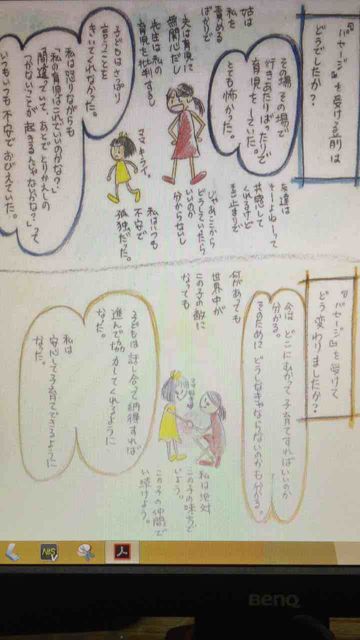 『パセージ』を受ける前は
どうでしたか?
その場その場で
行きあたりばったりで
育児をしていた。
とても怖かった。
友達は
そーよねーって
共感して
くれるけど
そこ止まりで
じゃあここから
どうしていったら
いいのか
分からないし
姑は
私を
責める
ばかりで
夫は育児に
無関心だし
先生は私の
育児を批判するし
ママキライ。
私はいつも
不安で
孤独だった。
子どもはさっぱり
言うことを
きいてくれなかった。
私は怒りながらも
「私の育児はこれでいいのかな?
間違っていて、あとでとりかえしの
つかないことが起きるんじゃないかな?」って
いつもいつも不安でおびえていた。
『パセージ』を受けて
どう変わりましたか?
今はどこにむかって子育てすればいいのか
分かる。
そのためにどうしなきゃならないのかも分かる。
何があっても
世界中が
この子の敵に
なっても
私は絶対
この子の味方で
いよう。
この子の仲間で
い続けよう。
子どもは話し合って納得すれば
進んで協力してくれるように
なった。
私は
安心して子育てできるように
なった。
BenQ